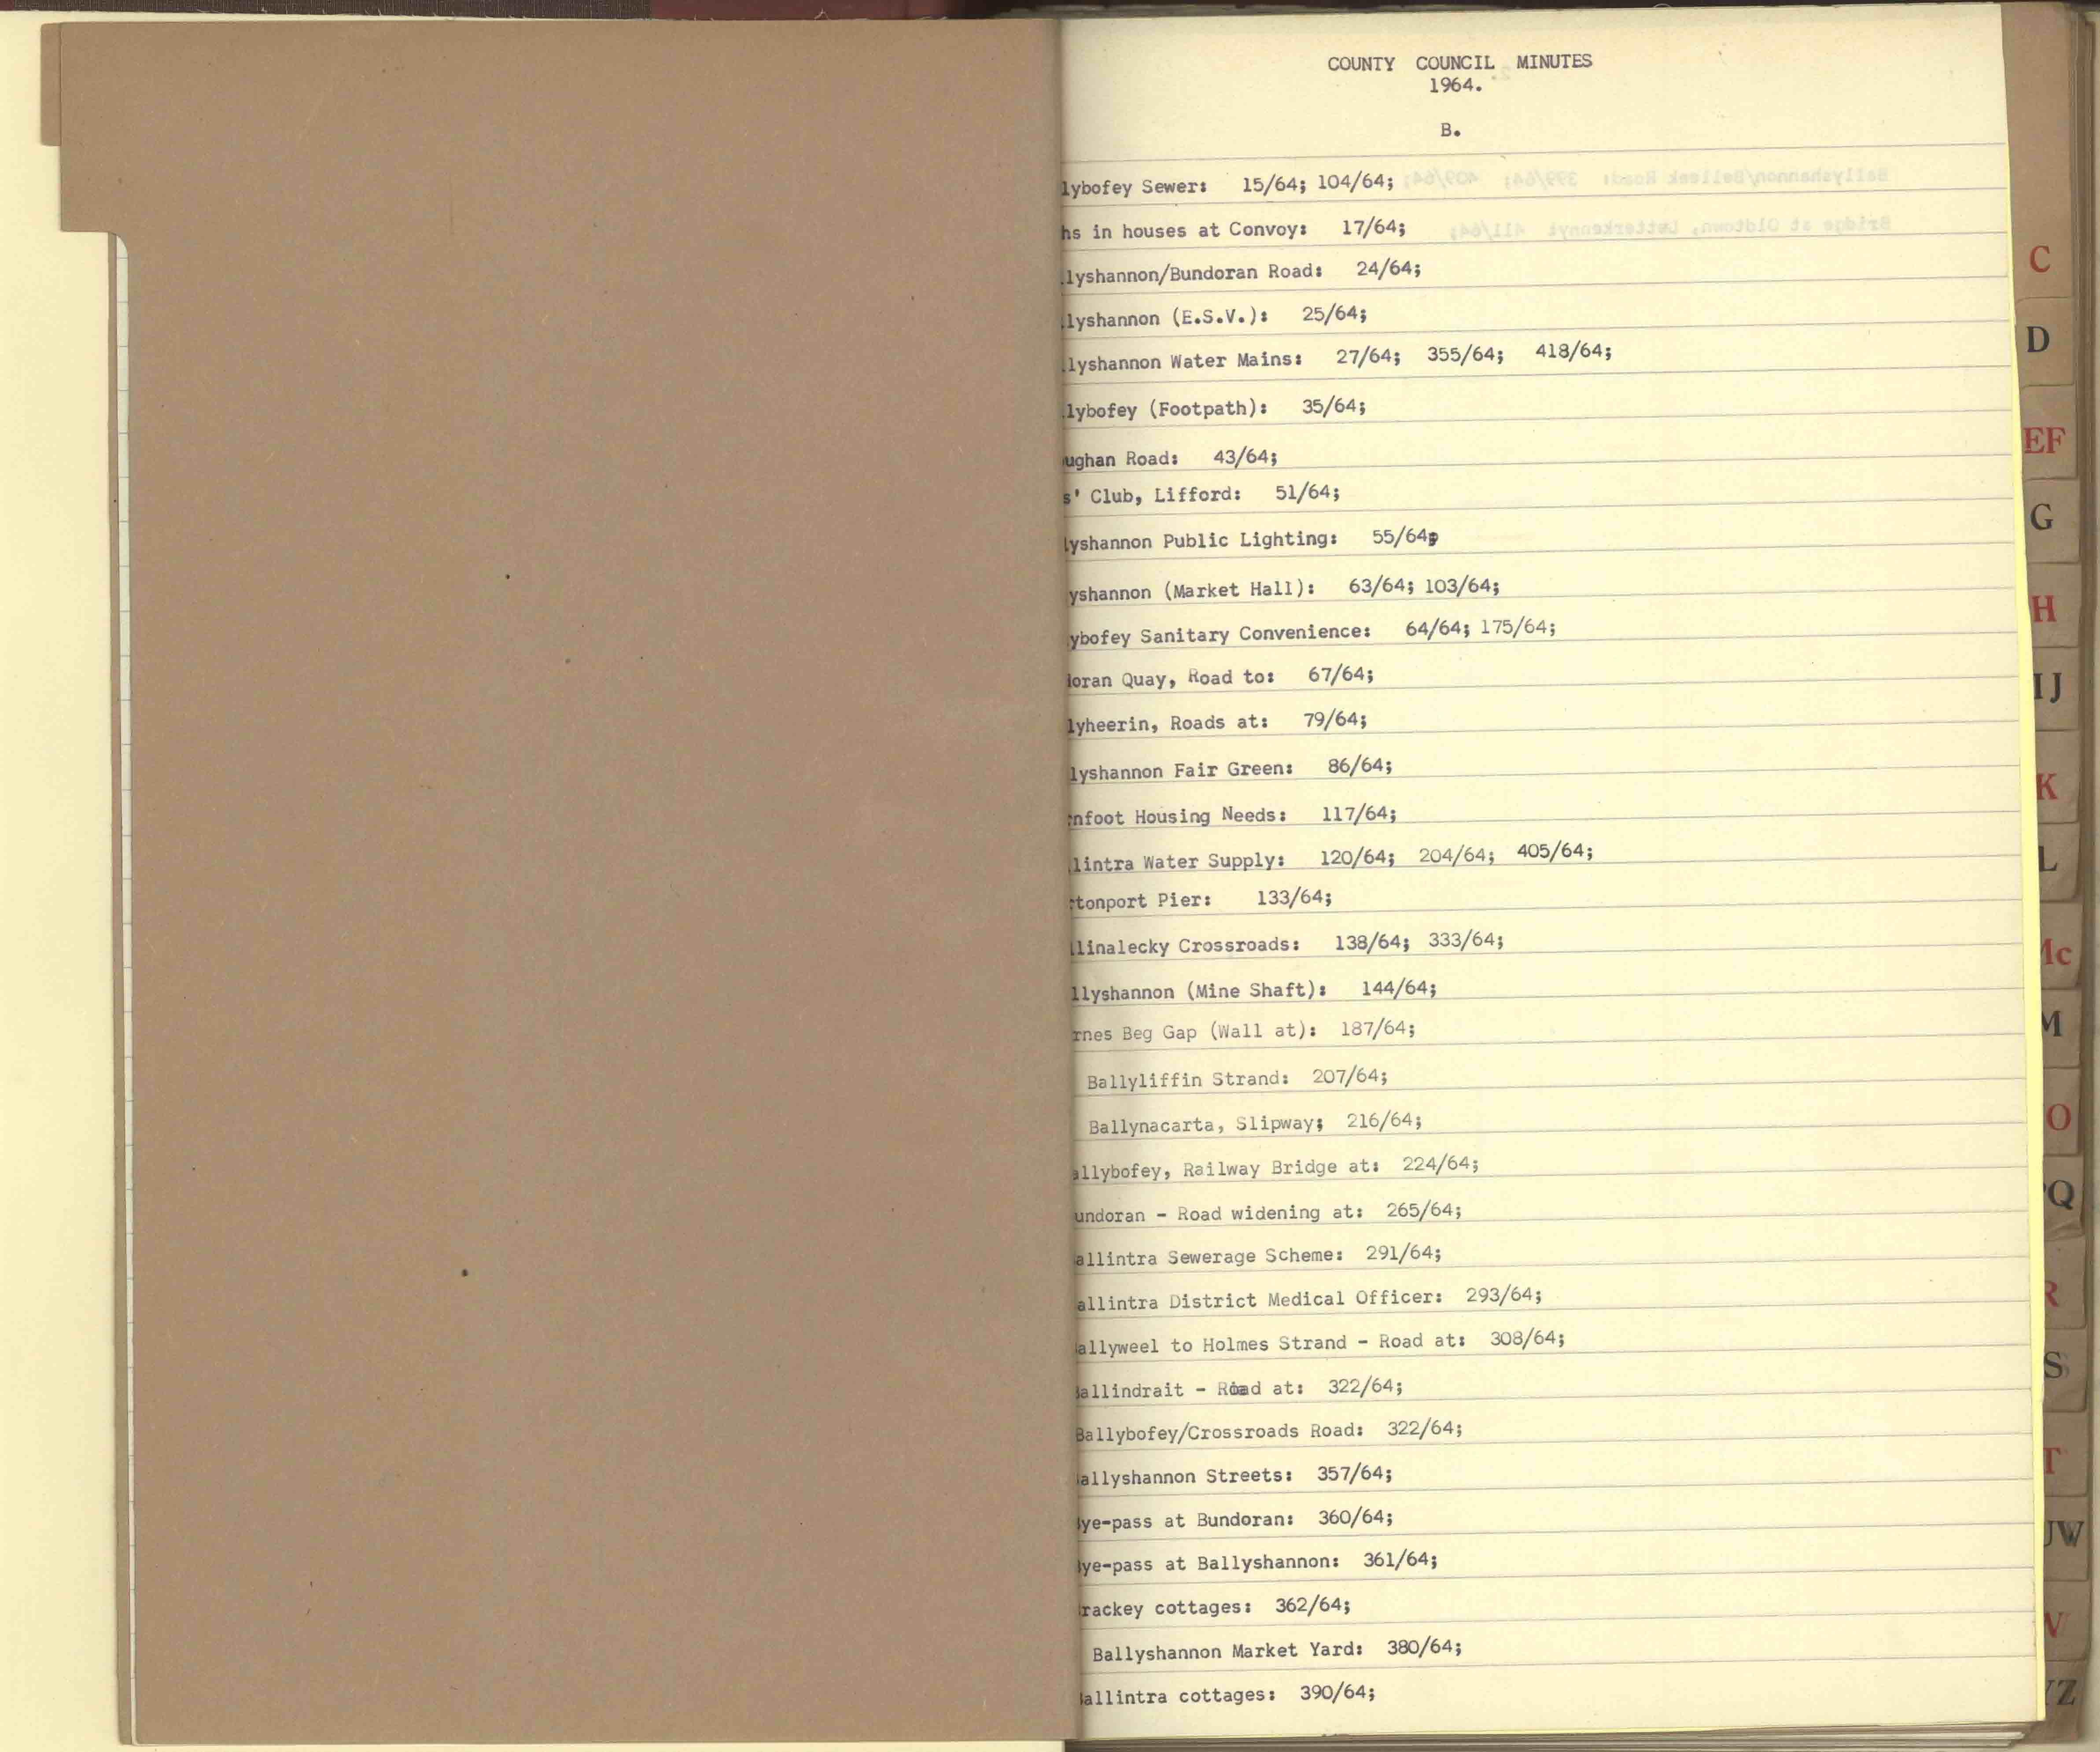 COUNTY COUNCIL MINUTES
1964.
B.
lybofey Sewer: 15/64; 104/64;
hs in houses at Convoy: 17/64;
lyshannon/Bundoran Road: 24/64;
lyshannon (E.S.V.): 25/64;
lyshannon Water Mains: 27/64; 355/64; 418/64;
lybofey (Footpath): 35/64;
ughan Road: 43/64;
s' Club, Lifford: 51/64;
lyshannon Public Lighting: 55/64;
yshannon (Market Hall): 63/64; 103/64;
ybofey Sanitary Convenience: 64/64; 175/64;
oran Quay, Road to: 67/64;
lyheerin, Roads at: 79/64;
lyshannon Fair Green: 86/64;
nfoot Housing Needs: 117/64;
lintra Water Supply: 120/64; 204/64; 405/64;
tonport Pier: 133/64;
llinalecky Crossroads: 138/64; 333/64;
llyshannon (Mine Shaft): 144/64;
rnes Beg Gap (Wall at): 187/64;
Ballyliffin Strand: 207/64;
Ballynacarta, Slipway; 216/64;
allybofey, Railway Bridge at: 224/64;
undoran - Road widening at: 265/64;
allintra Sewerage Scheme: 291/64;
allintra District Medical Officer: 293/64;
allyweel to Holmes Strand - Road at: 308/64;
allindrait - Road at: 322/64;
Ballybofey/Crossroads Road: 322/64;
allyshannon Streets: 357/64;
ye-pass at Bundoran: 360/64;
ye-pass at Ballyshannon: 361/64;
rackey cottages: 362/64;
Ballyshannon Market Yard: 380/64;
allintra cottages: 390/64;
C
D
EF
G
H
IJ
K
L
Mc
M
O
PQ
R
S
T
UW
YZ